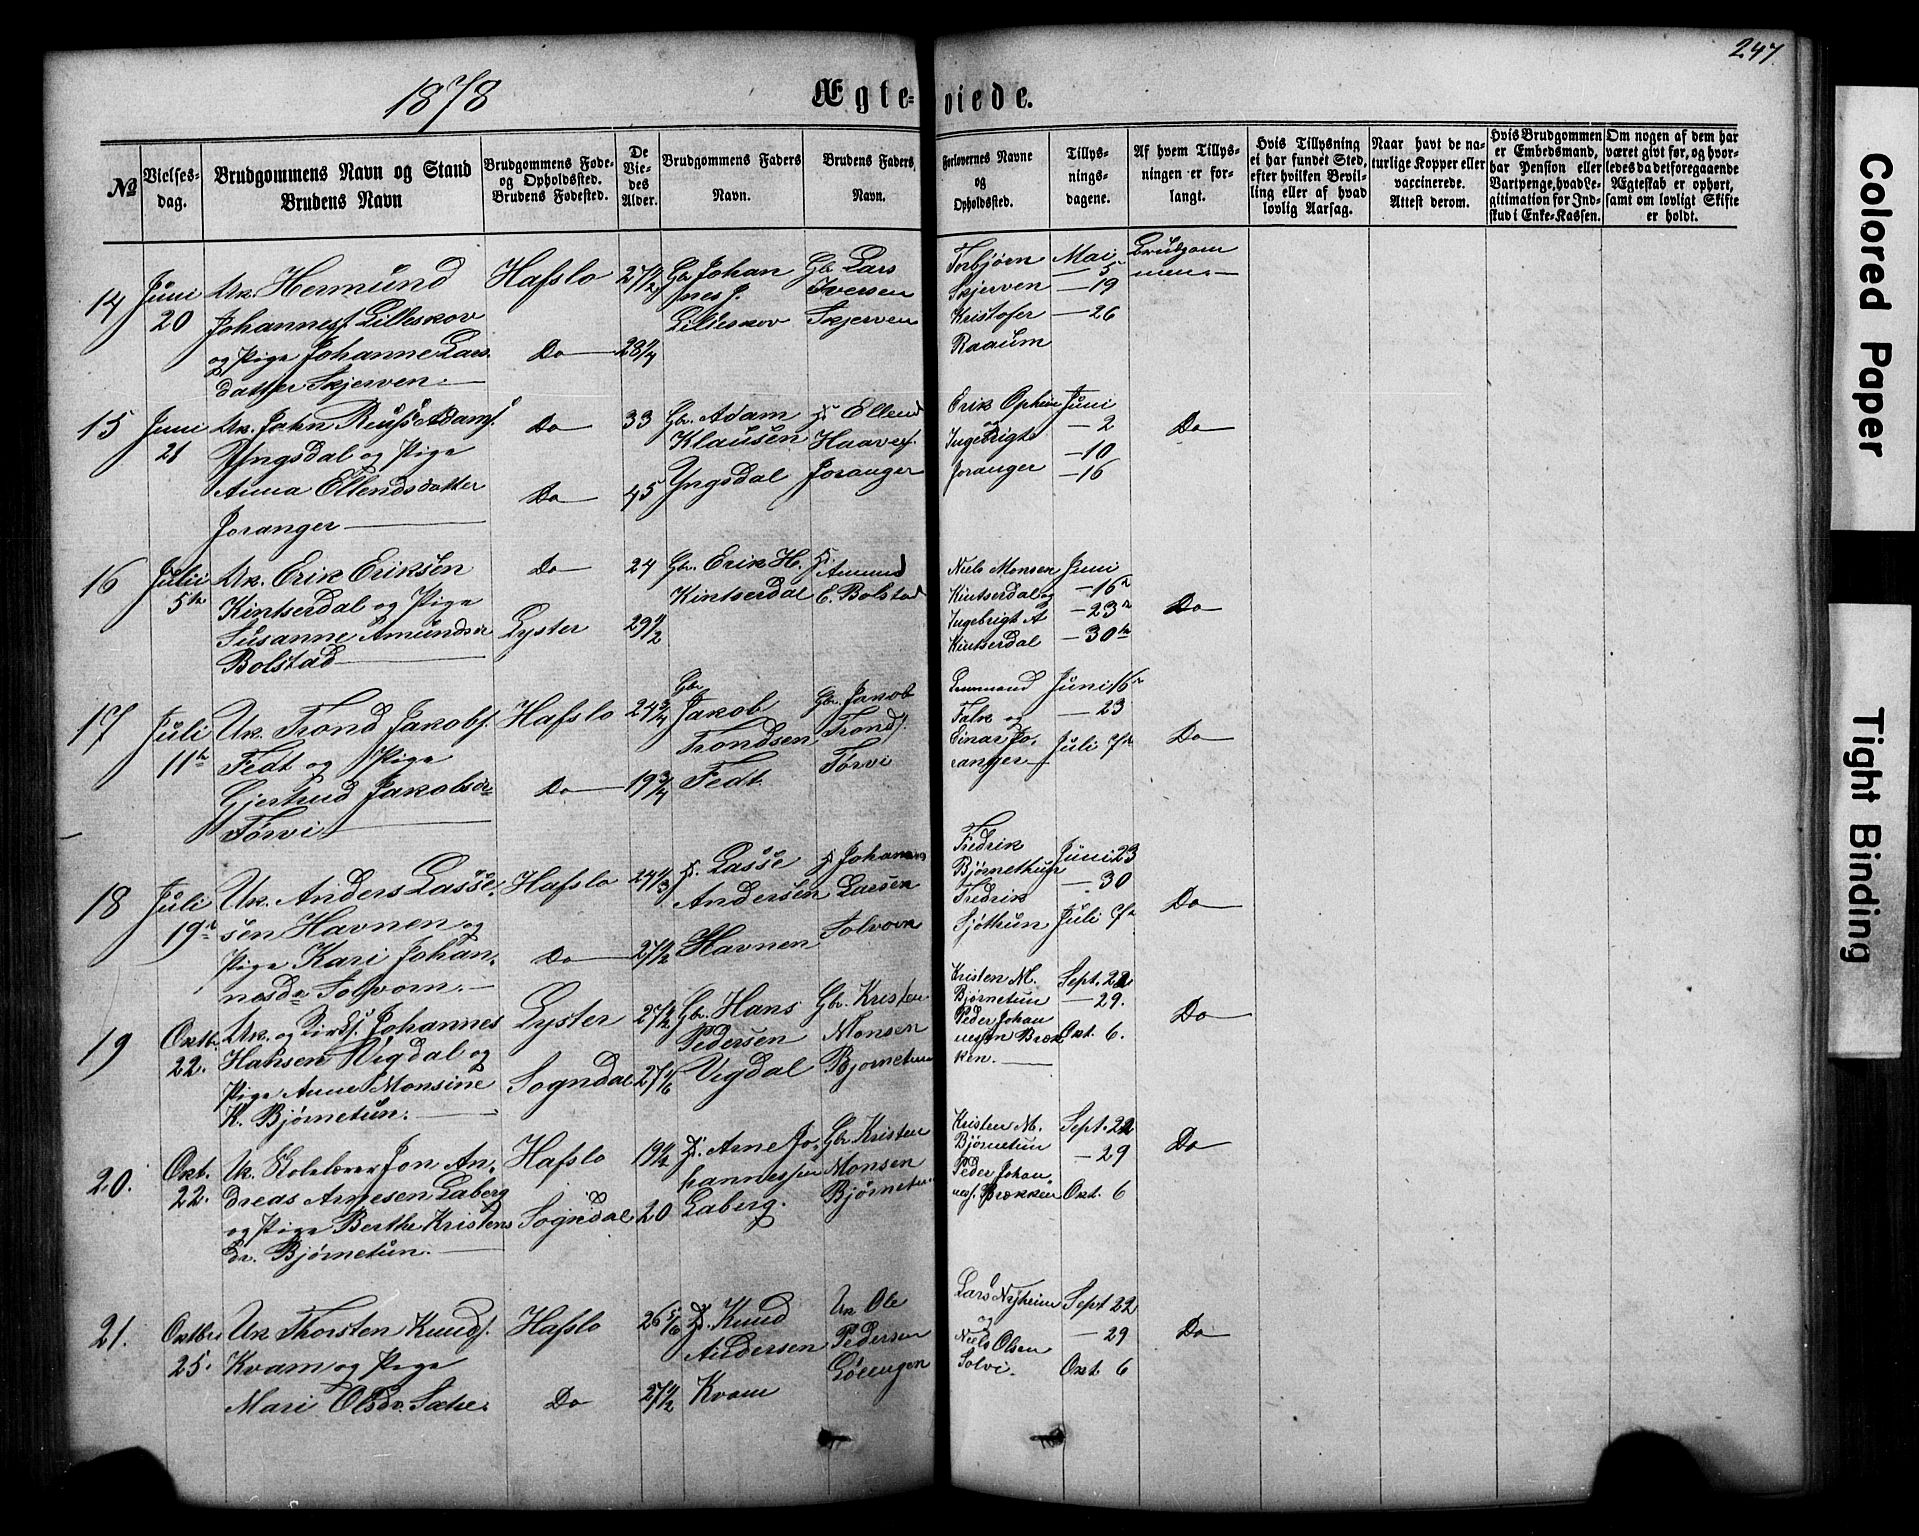 247
1878
Ægteviede.
No
Vielsesdag.
Brudgommens Navn og Stand
Brudens Navn
Brudgommens Føde-
og Opholdssted.
Brudens Fødested.
De
Vie-
des
Alder.
Brudgommens Faders
Navn.
Brudens Faders
Navn.
Forlovernes Navne
og
Opholdssted.
Tillys-
nings-
dagene.
Af hvem Tillys-
ningen er for-
langt.
Hvis Tillysning
ei har fundet Sted,
efter hvilken Bevil-
ling eller af hvad
lovlig Aarsag.
Naar havt de na-
turlige Kopper eller
vaccinerede.
Attest derom.
Hvis Brudgommen
er Embedsmand,
har Pension eller
Vartpenge, hvad Le-
gitimation for Ind-
skud i Enke-Kassen.
Om nogen af dem har
været gift før, og hvor-
ledes da det foregaaende
Ægteskab er ophørt,
samt om lovligt Skifte
er holdt.
14
Juni
20
Uk. Hermund
Johannesf. Lilleskov
og Pige Johanne Lars
datter Skjerven
Hafslo
Do
27 1/2
28 1/4
Gbr Johan
nes J.
Lilleskov
Gbr. Lars
Iversen
Skjerven
Torbjørn
Skjerven
Kristofer
Raaum
Mai
— 5
— 19
— 26
Brudgom
men
15
Juni
21
Uk. John Adamf.
Yngsdal og Pige
Anna Ellendsdatter
Joranger
Do
Do
33
45
Gbr. Adam
Klausen
Yngsdal
Ellend
Haavef.
Joranger
Erik Opheim
og
Ingebrigt
Joranger
Juni
— 2
— 10
— 16
Do
16
Julii
5te
Uk. Erik Eriksen
Kintserdal og Pige
Susanne Amundsdr
Bolstad
Do
Lyster
24
29 1/2
Gbr. Erik H.
Kintserdal
Amund
E. Bolstad
Niels Monsen
Kintserdal og
Ingebrigt A
Kintserdal
Juni
— 16
— 23
— 30te
Do
17
Juli
11te
Uk. Trond Jakobf.
Fedt og Pige
Gjertrud Jakobsdr
Torvi
Hafslo
Do
24 3/4
19 3/4
Gbr
Jakob
Trondsen
Fedt.
Gbr. Jakob
Trondf.
Torvi
Falk og
Einar Jo,
ranger
Juni 16
— 23
Juli 7de
Do
18
Juli
19
Uk. Anders Lasse,
sen Havnen og
Pige Kari Johan,
nesdr Solvorn.
Hafslo
Do
24 1/3
27 1/2
Lasse
Andersen
Havnen
Johannes
Larsen
Solvorn
Fredrik
Bjørnethun
Fredrik
Sjøthun
Juni 23
— 30
Juli 7de
Do
19
Oktb.
22.
Uk. og Johannes
Hansen Vigdal og
Pige Anne Monsine
K. Bjørnetun.
Lyster
Sogndal
27 1/2
27 1/6
Gbr. Hans
Pedersen
Vigdal
Gbr. Kristen
Monsen
Bjørnetun
Kristen M.
Bjørnetun
Peder Johan
nesen Bræk
ken.
Sept. 22
— 29.
Okt. 6.
Do
20.
Okt.
22.
Uk. Skolelærer Jon An,
dreas Arnesen Laberg
og Pige Berthe Kristens
dr. Bjørnetun.
Hafslo
Sogndal
19 1/2
20
Arne Jo,
hannessen
Laberg.
Gbr Kristen
Monsen
Bjørnetun
Kristen M.
Bjørnetun
Peder Johan,
nesf. Brækken
Sept. 22
— 29
Okt. 6
Do
21.
Oktbr
25.
Uk Thorsten Knudf.
Kvam og Pige
Mari Olsdr. Sætre.
Hafslo
Do
26 5/6
27 1/2
Knud
Andersen
Kvam
Ole
Pedersen
Lars Nyheim
og
Niels Olsen
Solvi.
Sept 22
— 29
Okt 6
Do
Colored Paper
Tight Binding